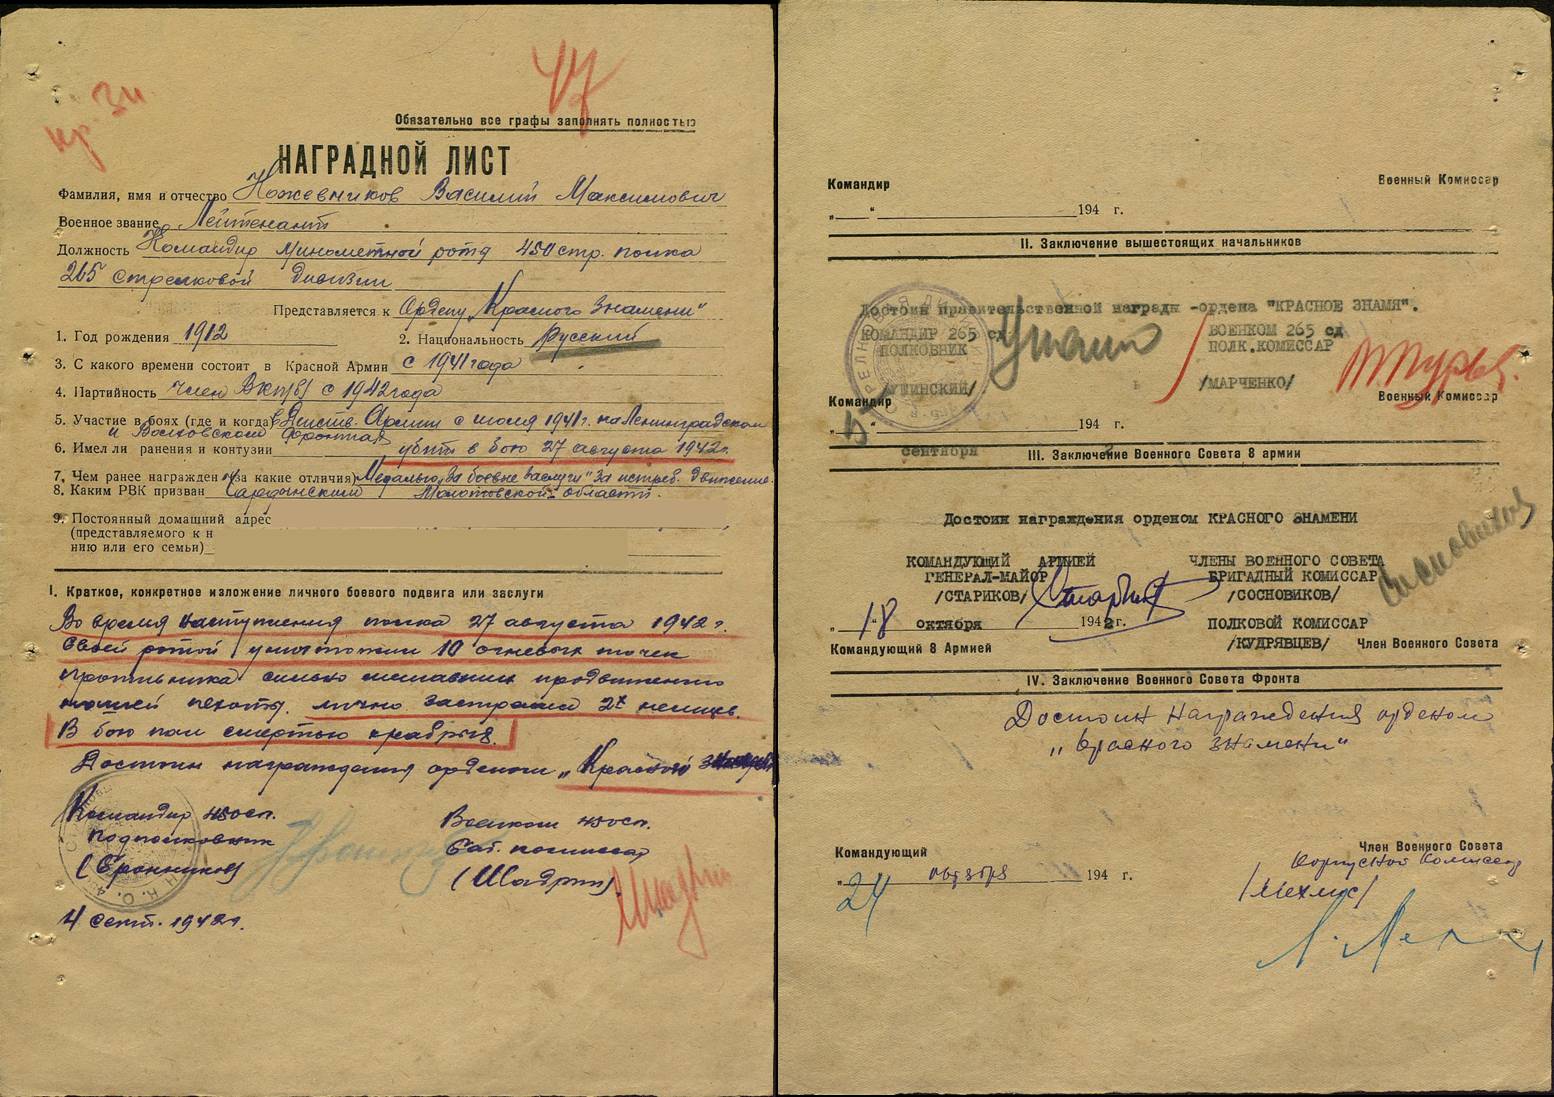 кр. Зн.
47
Обязательно все графы заполнять полностью
НАГРАДНОЙ ЛИСТ
Фамилия, имя и отчество Кожевников Василий Максимович
Военное звание Лейтенант
Должность Командир минометной роты 450 стр. полка
265 стрелковой дивизии
Представляется к Ордену „Красного Знамени"
1. Год рождения 1912 2. Национальность Русский
3. С какого времени состоит в Красной Армии с 1941 года
4. Партийность член ВКП(б) с 1942 года
5. Участие в боях (где и когда) в Действ. Армии с июля 1941 г. на Ленинградском
и Волховском фронтах
6. Имел ли ранения и контузии убит в бою 27 августа 1942 г.
7. Чем ранее награжден (за какие отличия) Медалью „За боевые заслуги" За истреб. движение.
8. Каким РВК призван Молотовской области.
9. Постоянный домашний адрес
(представляемого к н
нию или его семьи)
I. Краткое, конкретное изложение личного боевого подвига или заслуги
Во время наступления полка 27 августа 1942 г.
своей ротой уничтожил 10 огневых точек
противника сильно мешавших продвижению
нашей пехоты. лично застрелил 27 немцев.
В бою пал смертью храбрых.
Достоин награждения орденом „Красного Знамени
Командир 450 сп. Военком 450 сп.
подполковник Бат. комиссар
(Шадрин)
4 сент. 1942 г.
Командир Военный Комиссар
„ " 194 г.
II. Заключение вышестоящих начальников
Достоин правительственной награды -ордена "КРАСНОЕ ЗНАМЯ".
КОМАНДИР 265 сд ВОЕНКОМ 265 сд
ПОЛКОВНИК ПОЛК.КОМИССАР
/УШИНСКИЙ/ /МАРЧЕНКО/
Командир Военный Комиссар
5 сентября 194 2 г.
III. Заключение Военного Совета 8 армии
Достоин награждения орденом КРАСНОГО ЗНАМЕНИ
КОМАНДУЮЩИЙ АРМИЕЙ ЧЛЕНЫ ВОЕННОГО СОВЕТА
ГЕНЕРАЛ-МАЙОР БРИГАДНЫЙ КОМИССАР
/СТАРИКОВ/ /СОСНОВИКОВ/
Сосновиков
„18 октября 1942 г. ПОЛКОВОЙ КОМИССАР
Командующий 8 Армией /КУДРЯВЦЕВ/ Член Военного Совета
IV. Заключение Военного Совета Фронта
Достоин награждения орденом
„Красного знамени"
Командующий Член Военного Совета
Корпусной Комиссар
„24 октября 194 г. /Мехлис/